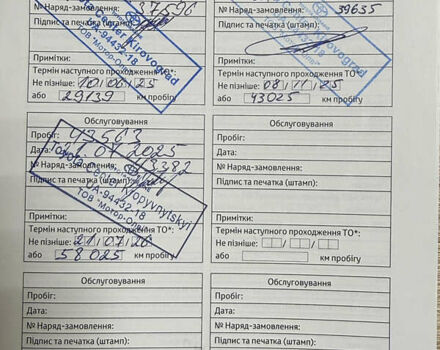 № Наряд-замовлення: 37596
Підпис та печатка (штамп):
Center Kirovograd
UA-94432-18
Примітки:
Термін наступного проходження ТО*:
Не пізніше: 10/06/25
або 29139 км пробігу
№ Наряд-замовлення: 39655
Підпис та печатка (штамп):
Kirovograd
Примітки:
Термін наступного проходження ТО*:
Не пізніше: 08/11/25
або 43025 км пробігу
Обслуговування
Пробіг: 43563
Дата: 21.07.2025
№ Наряд-замовлення: 43382
Підпис та печатка (штамп):
Toyota Center Kropyvnytskyi
UA-94432-18
ТОВ "Мотор-Олві"
Примітки:
Термін наступного проходження ТО*:
Не пізніше: 21/07/26
або 58025 км пробігу
Обслуговування
Пробіг:
Дата:
№ Наряд-замовлення:
Підпис та печатка (штамп):
Примітки:
Термін наступного проходження ТО*:
Не пізніше: / /
або км пробігу
Обслуговування
Пробіг:
Дата:
№ Наряд-замовлення:
Підпис та печатка (штамп):
Обслуговування
Пробіг:
Дата:
№ Наряд-замовлення:
Підпис та печатка (штамп):